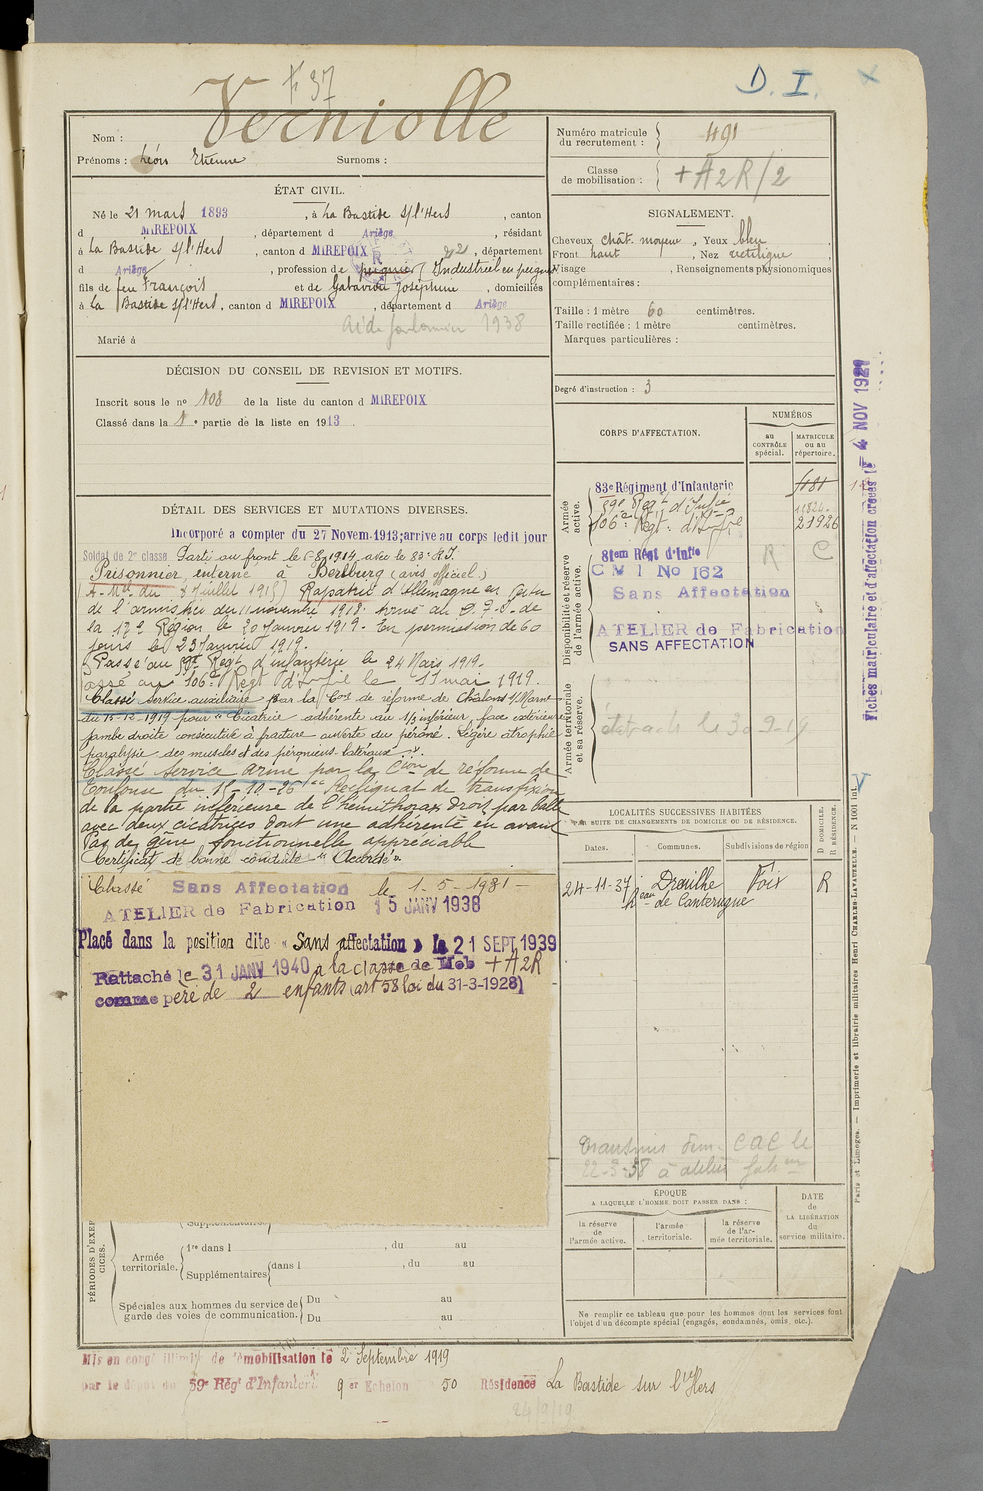 F 37
D. I.
Verniolle
Nom :
Prénoms : Léon Etienne Surnoms :
Numéro matricule du recrutement : 491
Classe de mobilisation : + A 2 R/2
ÉTAT CIVIL.
Né le 21 mars 1893, à La Bastide s/l'Hers, canton
d MIREPOIX, département d Ariège, résidant
à La Bastide s/l'Hers, canton d MIREPOIX, département
d Ariège, profession de peignier Industriel en peignes
fils de feu François et de Gabaviou Joséphine, domiciliés
à La Bastide s/l'Hers, canton d MIREPOIX, département d Ariège
1938
Marié à
SIGNALEMENT.
Cheveux chât. moyen, Yeux bleu
Front haut, Nez rectiligne
Visage , Renseignements physionomiques
complémentaires :
Taille : 1 mètre 60 centimètres.
Taille rectifiée : 1 mètre centimètres.
Marques particulières :
Degré d'instruction : 3
DÉCISION DU CONSEIL DE REVISION ET MOTIFS.
Inscrit sous le no 108 de la liste du canton d MIREPOIX
Classé dans la 1e partie de la liste en 1913.
DÉTAIL DES SERVICES ET MUTATIONS DIVERSES.
Incorporé a compter du 27 Novem. 1913; arrive au corps ledit jour
Soldat de 2e classe Parti au front le 6-8-1914 avec le 83e R.I.
Prisonnier, interné à Berlburg (avis officiel)
Juillet 1915) Rapatrié d'Allemagne en
de l'armistice du 11 novembre 1918. de
la 17e Région le 20 Janvier 1919. En permission de 60
jours le 23 Janvier 1919.
Passé au 59e Regt d'infanterie le 24 Mars 1919.
Passé au 106e Regt d'Infie le 11 mai 1919.
Classé service auxiliaire par la Con de réforme de Châlons s/Marne
du 15-12-1919 pour "Cicatrice adhérente au 1/3 inférieur, face extérieure
jambe droite consécutive à fracture ouverte du péroné. Légère atrophie
paralysie des muscles et des péroniers-latéraux".
Classé Service armé par la Cion de réforme de
Toulouse du 15-10-26 "Reliquat de transfixion
de la partie inférieure de l'hémithorax droit par balle
avec deux cicatrices dont une adhérente en avant
Pas de gêne fonctionnelle appréciable
Certificat de bonne conduite "Accordé".
Classé Sans Affectation le 1-5-1931
ATELIER de Fabrication 15 JANV 1938
Placé dans la position dite « Sans affectation » le 21 SEPT 1939
Rattaché le 31 JANV 1940 à la classe de Mob + A2R
comme père de 2 enfants (art 58 loi du 31-3-1928)
CORPS D'AFFECTATION.
NUMÉROS
au CONTRÔLE spécial.
MATRICULE ou au répertoire.
Armée active.
83e Régiment d'Infanterie
59e Regt d'Infie
106e Regt. d'Infie 21926
Disponibilité et réserve de l'armée active.
81em Régt d'Infie R C
C M I No 162
Sans Affectation
ATELIER de Fabrication
SANS AFFECTATION
Armée territoriale et sa réserve.
le 30-9-19
LOCALITÉS SUCCESSIVES HABITÉES
PAR SUITE DE CHANGEMENTS DE DOMICILE OU DE RÉSIDENCE.
Dates. Communes. Subdivisions de région
D DOMICILE. R RÉSIDENCE.
24-11-37 Dreuilhe Foix R
Heau de Canterugue
Transmis CAC le
22-3-38 à atelier
ÉPOQUE
A LAQUELLE L'HOMME DOIT PASSER DANS :
la réserve de l'armée active.
l'armée territoriale.
la réserve de l'armée territoriale.
DATE de LA LIBÉRATION du service militaire.
Ne remplir ce tableau que pour les hommes dont les services font
l'objet d'un décompte spécial (engagés, condamnés, omis, etc.).
PÉRIODES D'EXERCICES.
Supplémentaires
Armée territoriale.
1re dans l , du au
Supplémentaires dans l , du au
Spéciales aux hommes du service de garde des voies de communication.
Du au
Du au
Mis en congé illimité de démobilisation le 2 Septembre 1919
par le dépôt du 59e Rég' d'Infanterie 9er Echelon 50 Résidence La Bastide sur l'Hers
24/9/19
Fiches matriculaire et d'affectation créées le 4 NOV 1921
Paris et Limoges. — Imprimerie et librairie militaires Henri CHARLES-LAVAUZELLE. — N 1001 int.